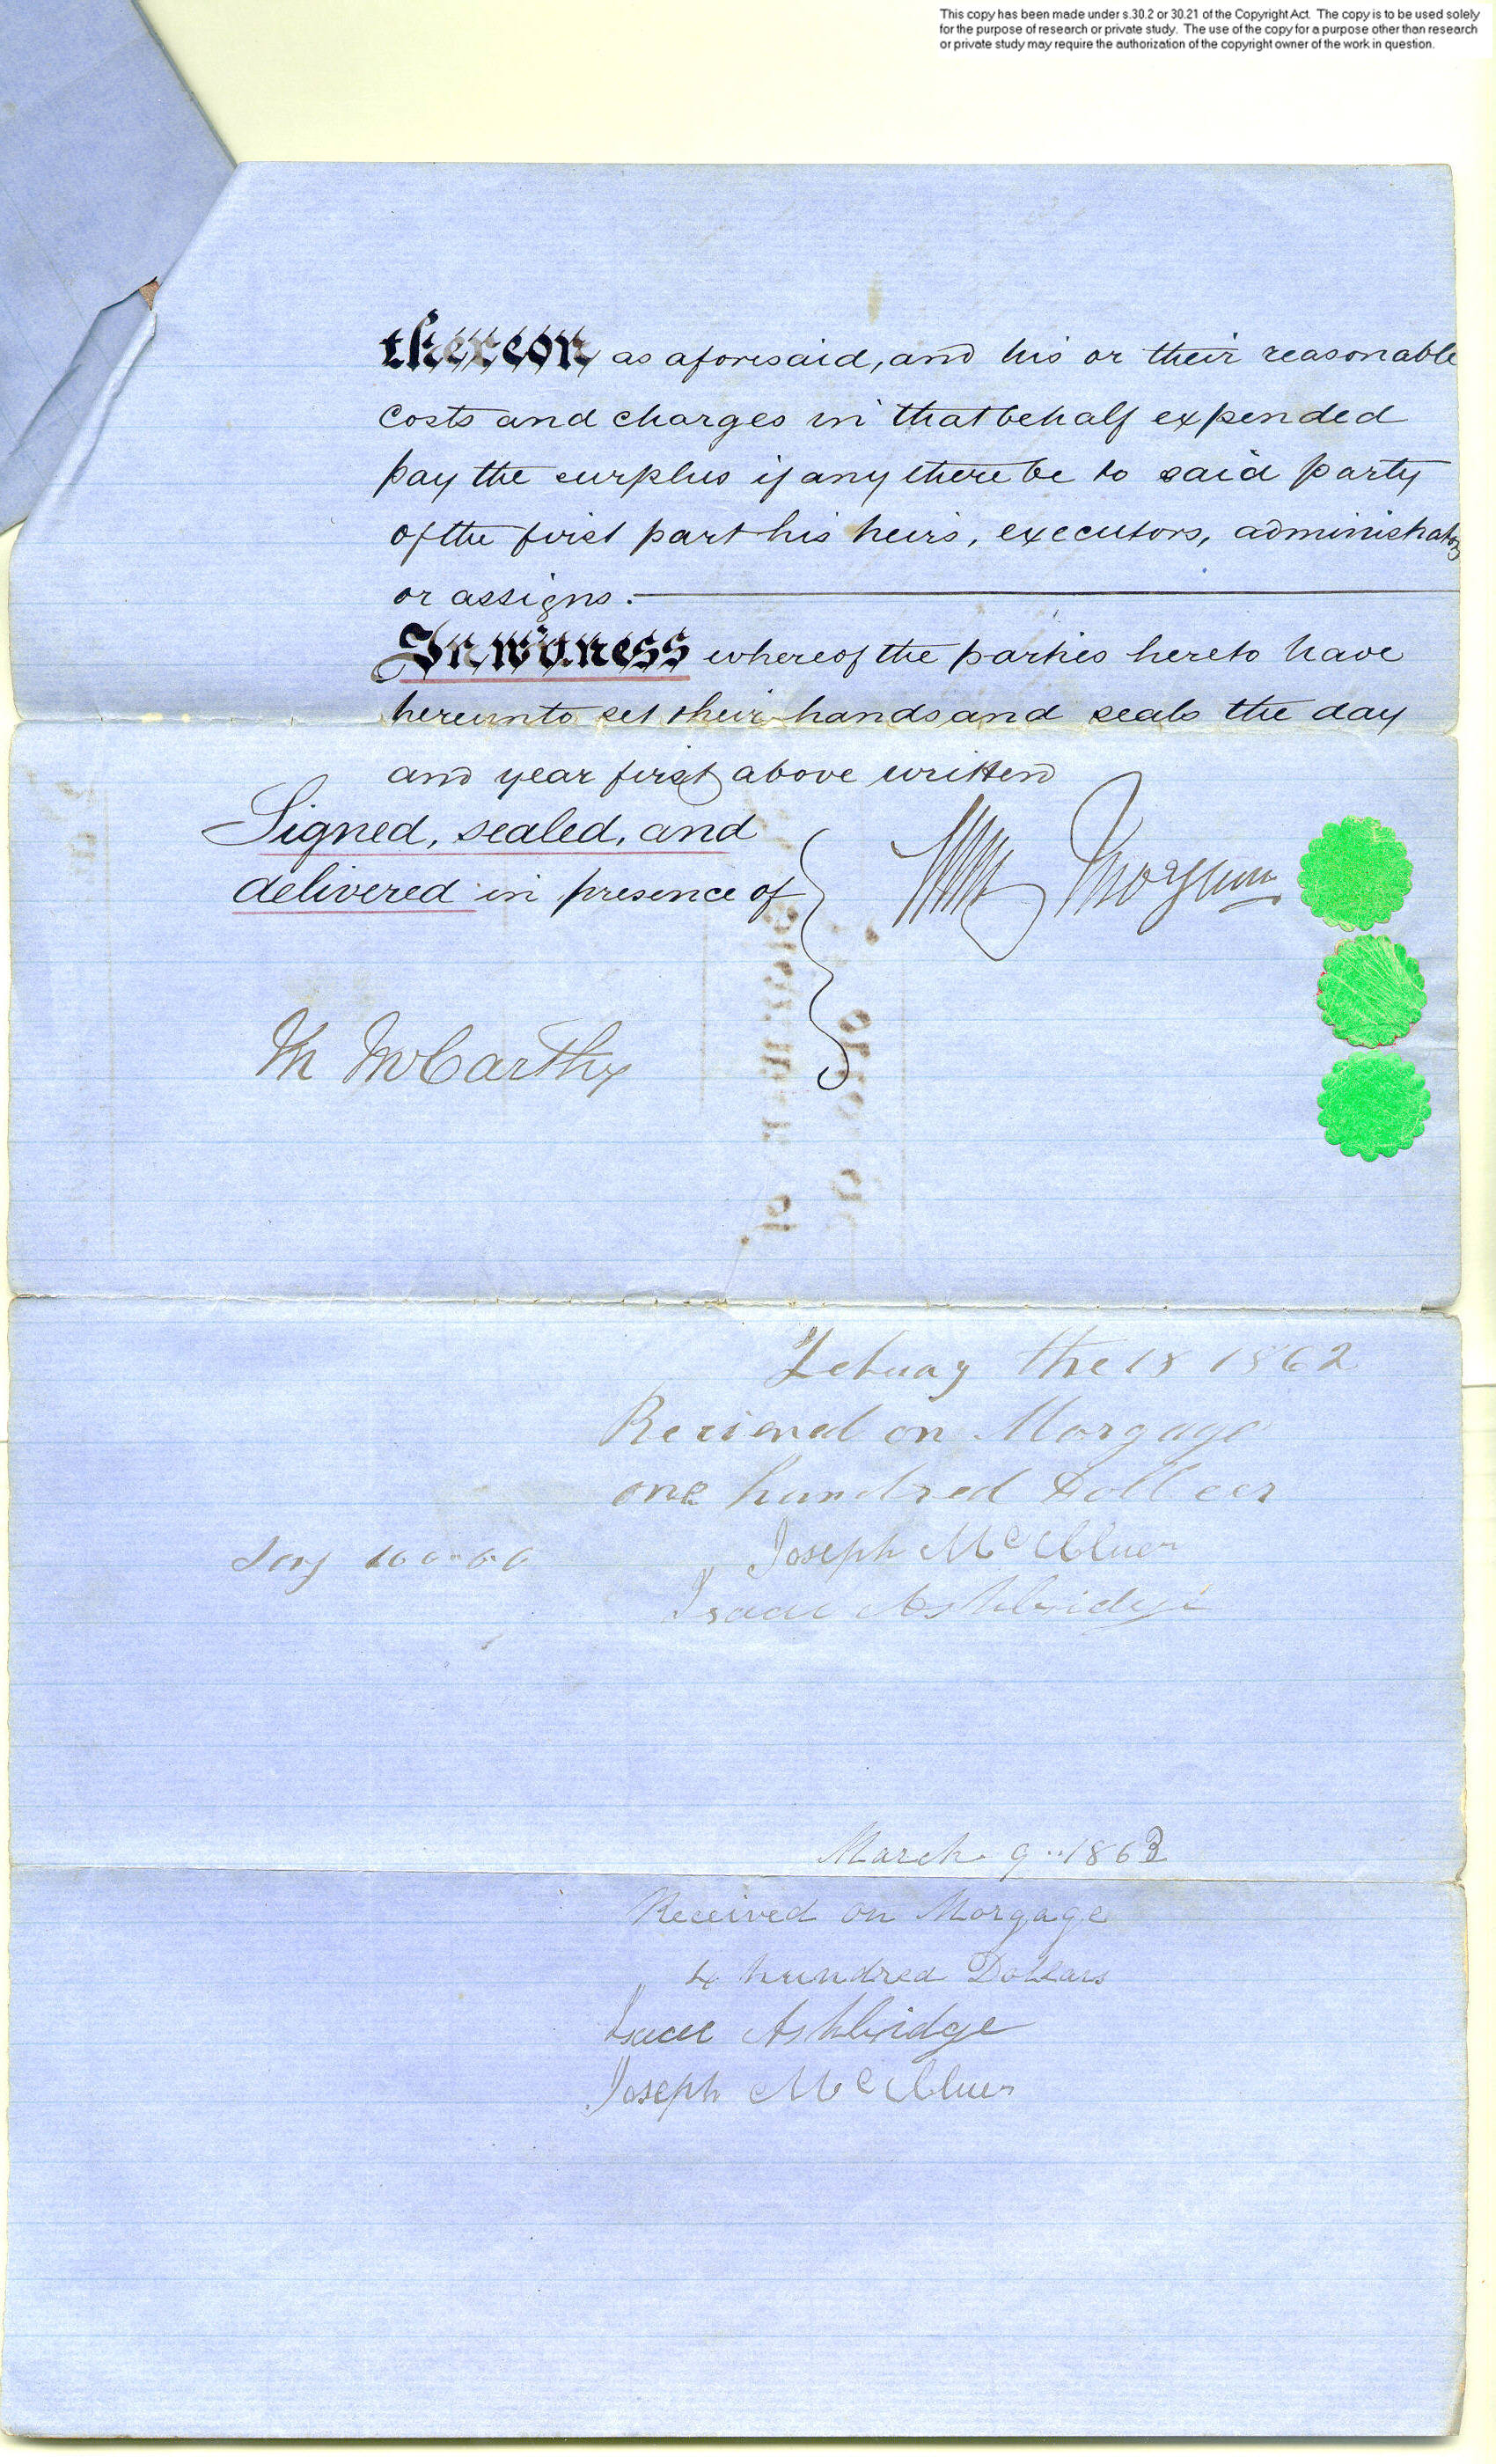 This copy has been made under s.30.2 or 30.21 of the Copyright Act. The copy is to be used solely
for the purpose of research or private study. The use of the copy for a purpose other than research
or private study may require the authorization of the copyright owner of the work in question.
thereon as aforesaid, and his or their reasonable
costs and charges in that behalf expended
pay the surplus if any there be to said party
of the first part his heirs, executors, administrators
or assigns.
In witness whereof the parties hereto have
hereunto set their hands and seals the day
and year first above written
Signed, sealed, and
delivered in presence of
Wm Morgan
M McCarthy
Febuay the 18 1862
Recieved on Morgage
one hundred Dollar
Joseph McCluer
100.00
Isaac Ashbridge
March 9 .. 1863
Received on Morgage
4 hundred Dollars
Isaac Ashbridge
Joseph McCluer